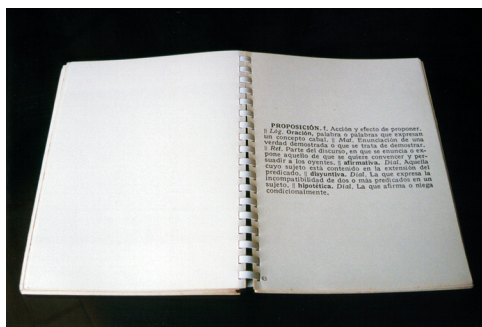 PROPOSICIÓN. f. Acción y efecto de proponer.
|| Lóg. Oración, palabra o palabras que expresan
un concepto cabal. || Mat. Enunciación de una
verdad demostrada o que se trata de demostrar.
|| Ret. Parte del discurso, en que se enuncia o ex-
pone aquello de que se quiere convencer y per-
suadir a los oyentes. || afirmativa. Dial. Aquella
cuyo sujeto está contenido en la extensión del
predicado. || disyuntiva. Dial. La que expresa la
incompatibilidad de dos o más predicados en un
sujeto. || hipotética. Dial. La que afirma o niega
condicionalmente.